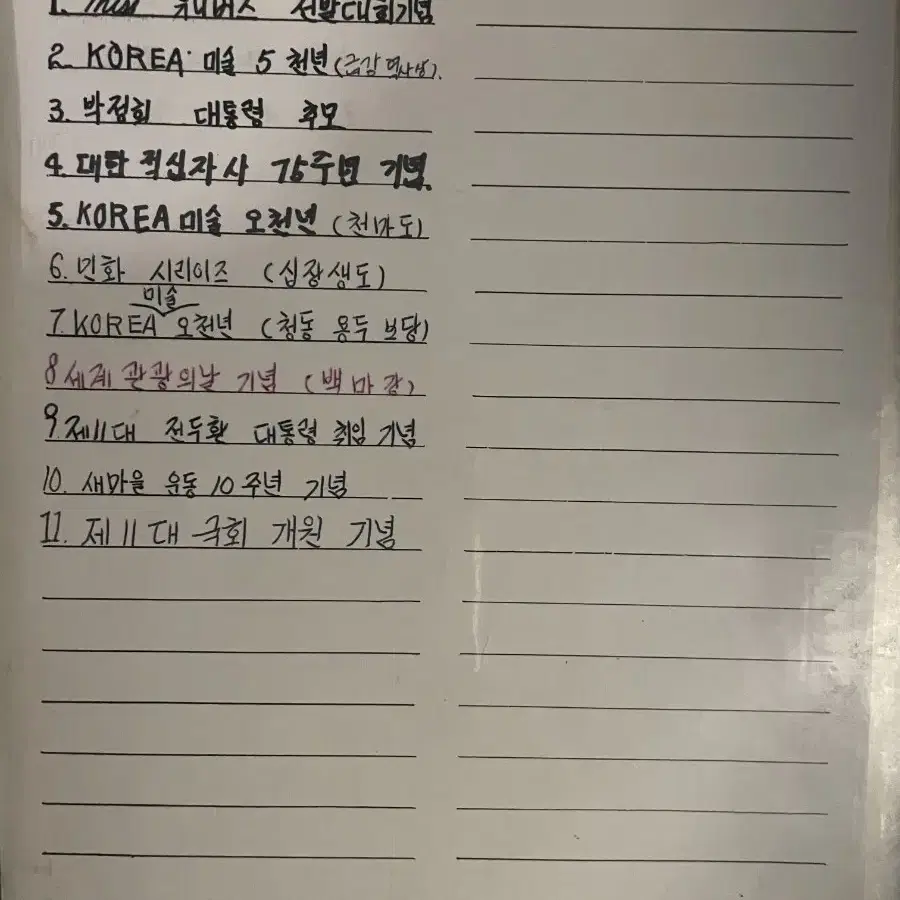 1. Miss 유니버스 선발대회기념
2. KOREA 미술 5 천년 (금강역사상).
3. 박정희 대통령 추모
4. 대한 적십자사 75주년 기념.
5. KOREA 미술 오천년 (천마도)
6. 민화 시리이즈 (십장생도)
미술
7. KOREA 오천년 (청동 용두 보당)
8 세계 관광의날 기념 (백마강)
9. 제11대 전두환 대통령 취임 기념
10. 새마을 운동 10주년 기념
11. 제11대 국회 개원 기념